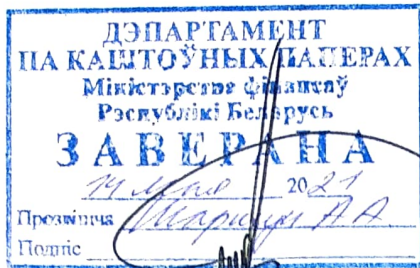 ДЭПАРТАМЕНТ
ПА КАШТОЎНЫХ ПАПЕРАХ
Міністэрства фінансаў
Рэспублікі Беларусь
ЗАВЕРАНА
14 мая 2021
Прозвішча А А
Подпіс